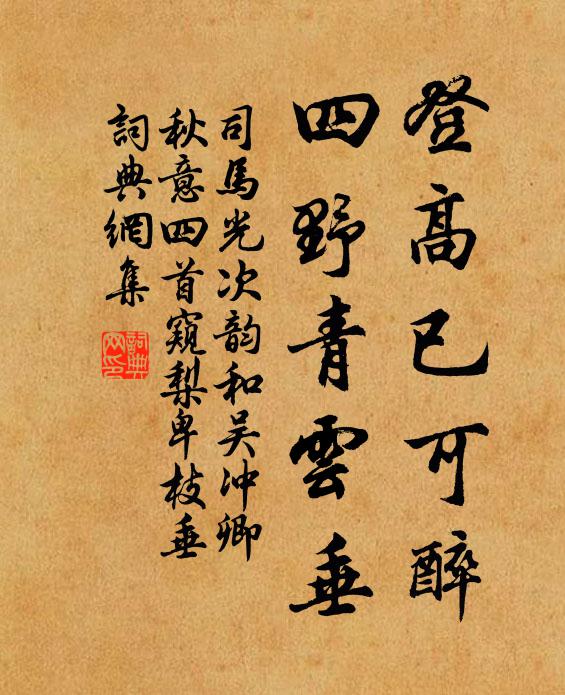 登高已可醉
四野青雲垂
司馬光次韵和吴冲卿
秋意四首窺梨卑枝垂
詞典網集
詞典
网印